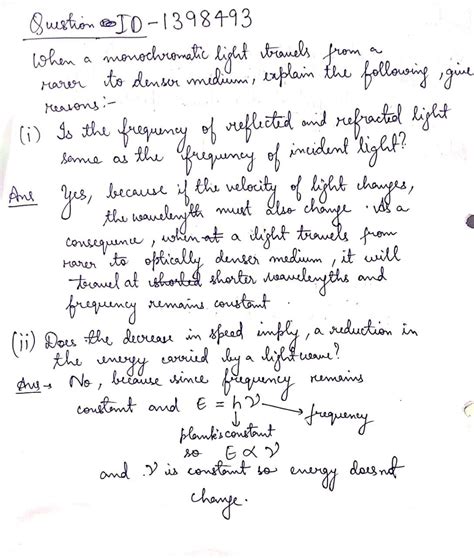 Question ID-1398493
When a monochromatic light travels from a
rarer to denser medium, explain the following, give
reasons:-
(i) Is the frequency of reflected and refracted light
same as the frequency of incident light?
Ans Yes, because if the velocity of light changes,
the wavelength must also change. As a
consequence, when at a light travels from
rarer to optically denser medium, it will
travel at shorted shorter wavelengths and
frequency remains constant.
(ii) Does the decrease in speed imply, a reduction in
the energy carried by a light wave?
Ans→ No, because since frequency remains
constant and E = hν → frequency
↓
plank's constant
so E ∝ ν
and ν is constant so energy doesnot
change.